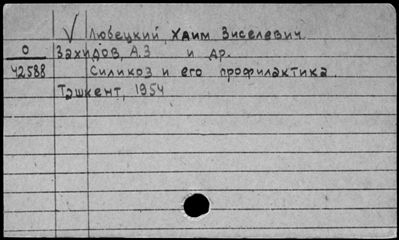 √ Любецкий, Хаим Зиселевич.
0 Захидов, А.З и др.
42588 Силикоз и его профилактика.
Ташкент, 1954